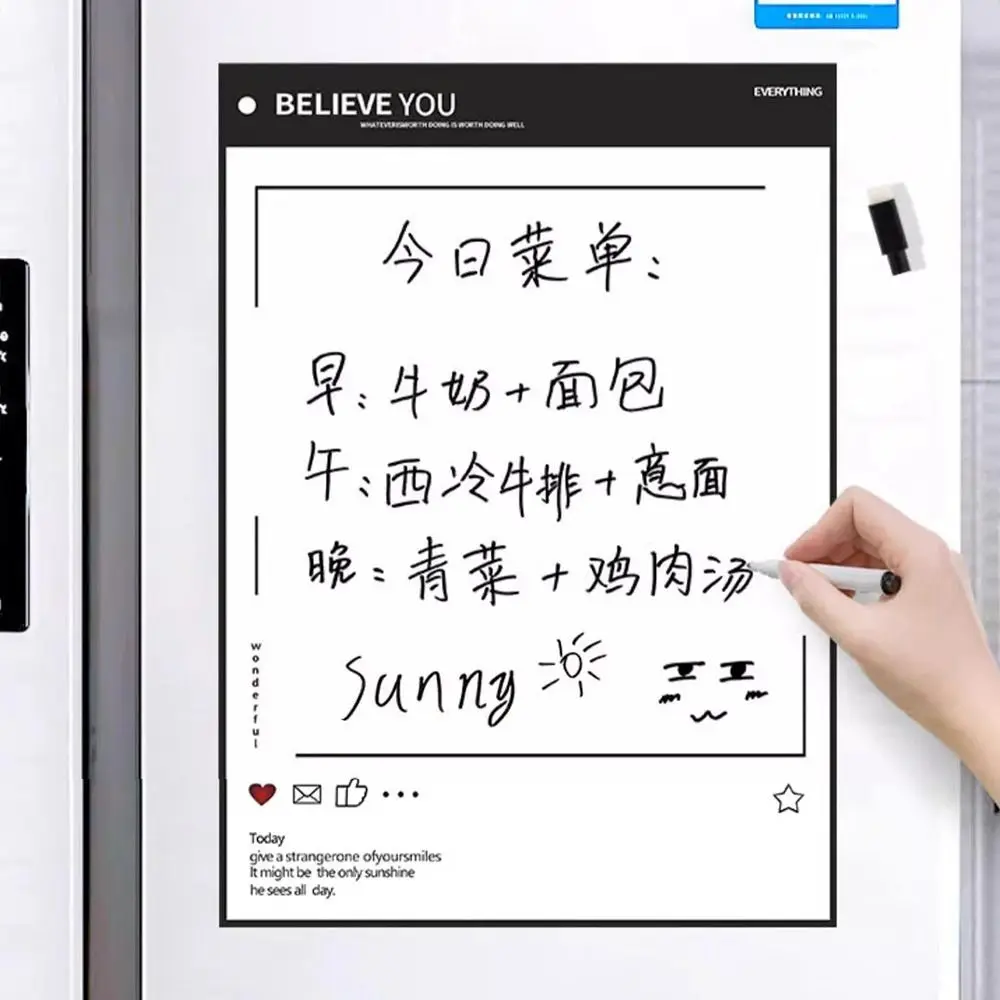 BELIEVE YOU
EVERYTHING
WHATEVERISWORTH DOING IS WORTH DOING WELL
今日菜单:
早:牛奶+面包
午:西冷牛排+意面
晚:青菜+鸡肉汤
Sunny
wonderful
Today
give a strangerone ofyoursmiles
It might be the only sunshine
he sees all day.